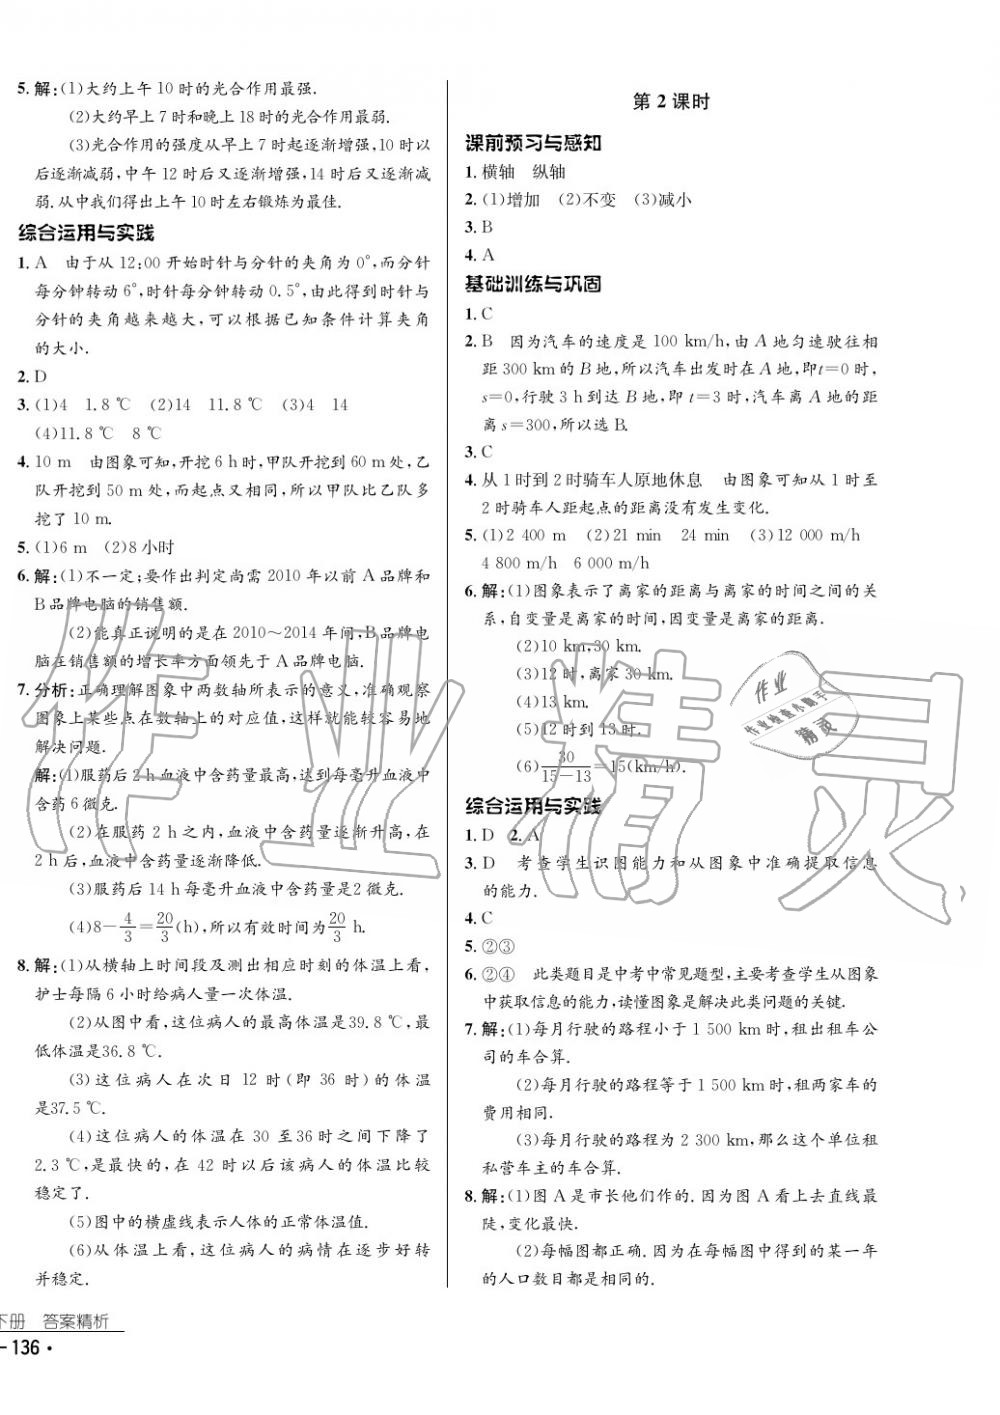 5. 解:(1)大约上午 10 时的光合作用最强.
(2)大约早上 7 时和晚上 18 时的光合作用最弱.
(3)光合作用的强度从早上 7 时起逐渐增强,10 时以
后逐渐减弱,中午 12 时后又逐渐增强,14 时后又逐渐减
弱.从中我们得出上午 10 时左右锻炼为最佳.
综合运用与实践
1. A 由于从 12:00 开始时针与分针的夹角为 0°,而分针
每分钟转动 6°,时针每分钟转动 0.5°,由此得到时针与
分针的夹角越来越大,可以根据已知条件计算夹角
的大小.
2. D
3. (1)4 1.8 ℃ (2)14 11.8 ℃ (3)4 14
(4)11.8 ℃ 8 ℃
4. 10 m 由图象可知,开挖 6 h 时,甲队开挖到 60 m 处,乙
队开挖到 50 m 处,而起点又相同,所以甲队比乙队多
挖了 10 m.
5. (1)6 m (2)8 小时
6. 解:(1)不一定;要作出判定尚需 2010 年以前 A 品牌和
B 品牌电脑的销售额.
(2)能真正说明的是在 2010~2014 年间,B 品牌电
脑在销售额的增长率方面领先于 A 品牌电脑.
7. 分析:正确理解图象中两数轴所表示的意义,准确观察
图象上某些点在数轴上的对应值,这样就能较容易地
解决问题.
解:(1)服药后 2 h 血液中含药量最高,达到每毫升血液中
含药 6 微克.
(2)在服药 2 h 之内,血液中含药量逐渐升高,在
2 h 后,血液中含药量逐渐降低.
(3)服药后 14 h 每毫升血液中含药量是2 微克.
(4)8-4/3=20/3(h),所以有效时间为20/3 h.
8. 解:(1)从横轴上时间段及测出相应时刻的体温上看,
护士每隔 6 小时给病人量一次体温.
(2)从图中看,这位病人的最高体温是39.8 ℃,最
低体温是36.8 ℃.
(3)这位病人在次日 12 时(即 36 时)的体温
是37.5 ℃.
(4)这位病人的体温在 30 至36 时之间下降了
2.3 ℃,是最快的,在 42 时以后该病人的体温比较
稳定了.
(5)图中的横虚线表示人体的正常体温值.
(6)从体温上看,这位病人的病情在逐步好转
并稳定.
下册 答案精析
－136·
第 2 课时
课前预习与感知
1. 横轴 纵轴
2. (1)增加 (2)不变 (3)减小
3. B
4. A
基础训练与巩固
1. C
2. B 因为汽车的速度是 100 km/h,由 A 地匀速驶往相
距 300 km 的 B 地,所以汽车出发时在 A 地,即t=0 时,
s=0,行驶 3 h 到达 B 地,即 t=3 时,汽车离 A 地的距
离 s=300,所以选 B.
3. C
4. 从 1 时到 2 时骑车人原地休息 由图象可知从 1 时至
2 时骑车人距起点的距离没有发生变化.
5. (1)2 400 m (2)21 min 24 min (3)12 000 m/h
4 800 m/h 6 000 m/h
6. 解:(1)图象表示了离家的距离与离家的时间之间的关
系,自变量是离家的时间,因变量是离家的距离.
(2)10 km,30 km.
(3)12 时,离家 30 km.
(4)13 km.
(5)12 时到 13 时.
(6)30/(15-13)=15(km/h).
综合运用与实践
1. D 2. A
3. D 考查学生识图能力和从图象中准确提取信息
的能力.
4. C
5. ②③
6. ②④ 此类题目是中考中常见题型,主要考查学生从图象
中获取信息的能力,读懂图象是解决此类问题的关键.
7. 解:(1)每月行驶的路程小于 1 500 km 时,租出租车公
司的车合算.
(2)每月行驶的路程等于 1 500 km 时,租两家车的
费用相同.
(3)每月行驶的路程为 2 300 km,那么这个单位租
私营车主的车合算.
8. 解:(1)图 A 是市长他们作的.因为图 A 看上去直线最
陡,变化最快.
(2)每幅图都正确.因为在每幅图中得到的某一年
的人口数目都是相同的.
作业精灵
作业
作业检查小助手
精灵